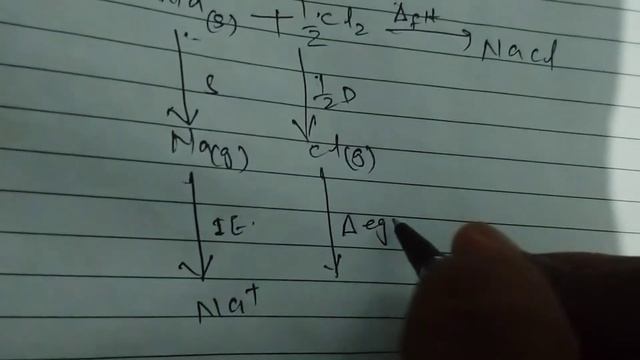 (s) + 1/2 Cl2 ΔfH → NaCl
S 1/2 D
Na(g) Cl(g)
IE. Δeg
Na+